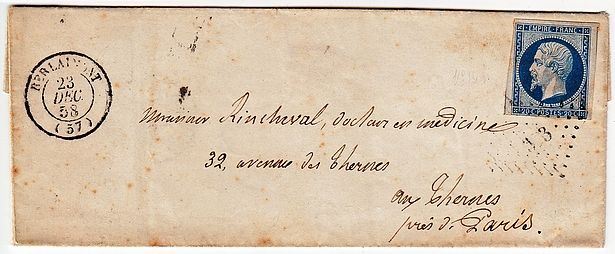 EMPIRE FRANC.
20 C. POSTES 20 C.
BERLAIMONT
23
DEC.
58
(57)
Monsieur Rincheval, docteur en médecine
32, avenue des Thernes
aux Thernes
près de Paris.